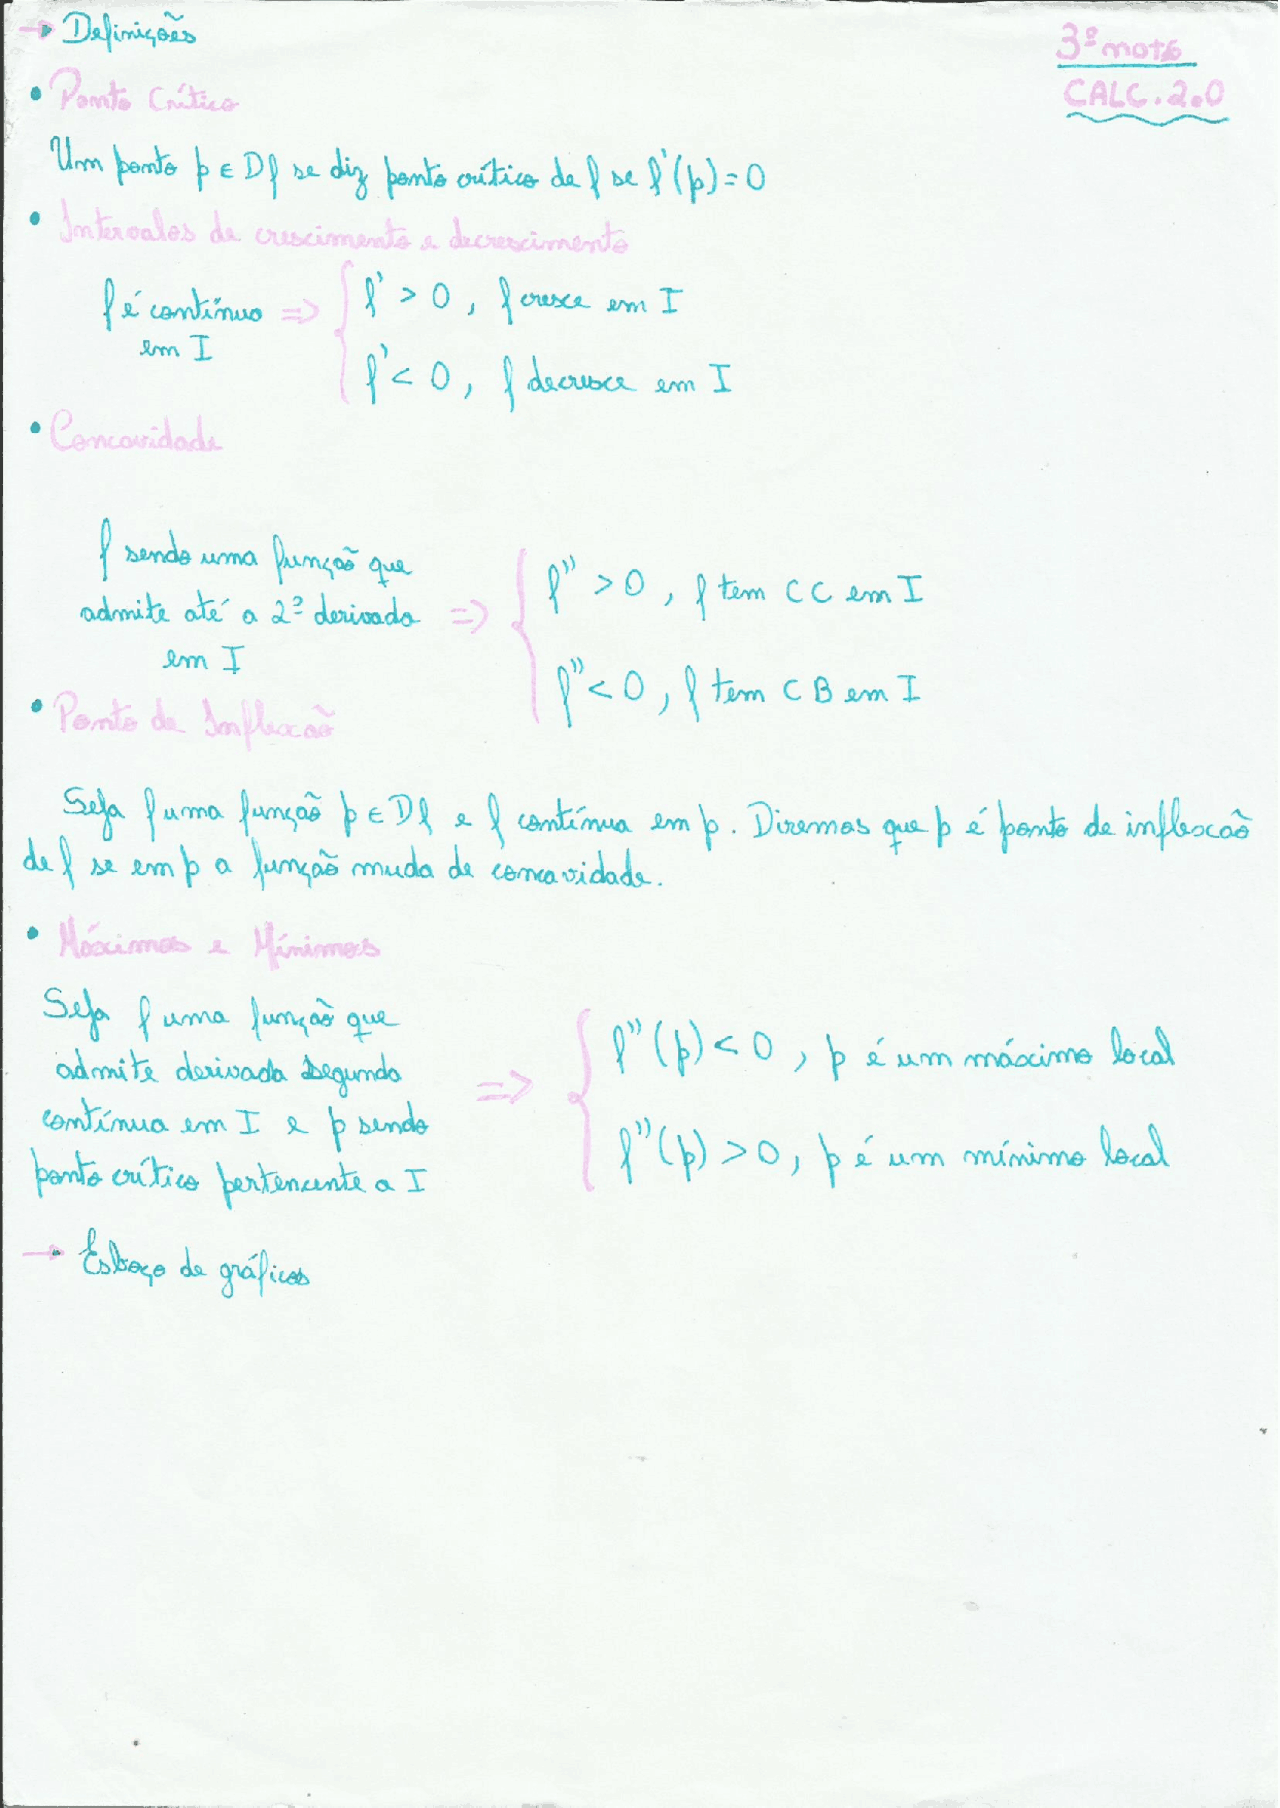 → Definições
3ª nota
CALC. 2.0
• Ponto Crítico
Um ponto p ∈ Df se diz ponto crítico de f se f'(p) = 0
• Intervalos de crescimento e decrescimento
f é contínuo em I ⇒ { f' > 0, f cresce em I
f' < 0, f decresce em I
• Concavidade
f sendo uma função que
admite até a 2ª derivada
em I
⇒ { f'' > 0, f tem CC em I
f'' < 0, f tem CB em I
• Ponto de Inflexão
Seja f uma função p ∈ Df e f contínua em p. Diremos que p é ponto de inflexão
de f se em p a função muda de concavidade.
• Máximos e Mínimos
Seja f uma função que
admite derivada segunda
contínua em I e p sendo
ponto crítico pertencente a I
⇒ { f''(p) < 0, p é um máximo local
f''(p) > 0, p é um mínimo local
→ • Esboço de gráficos